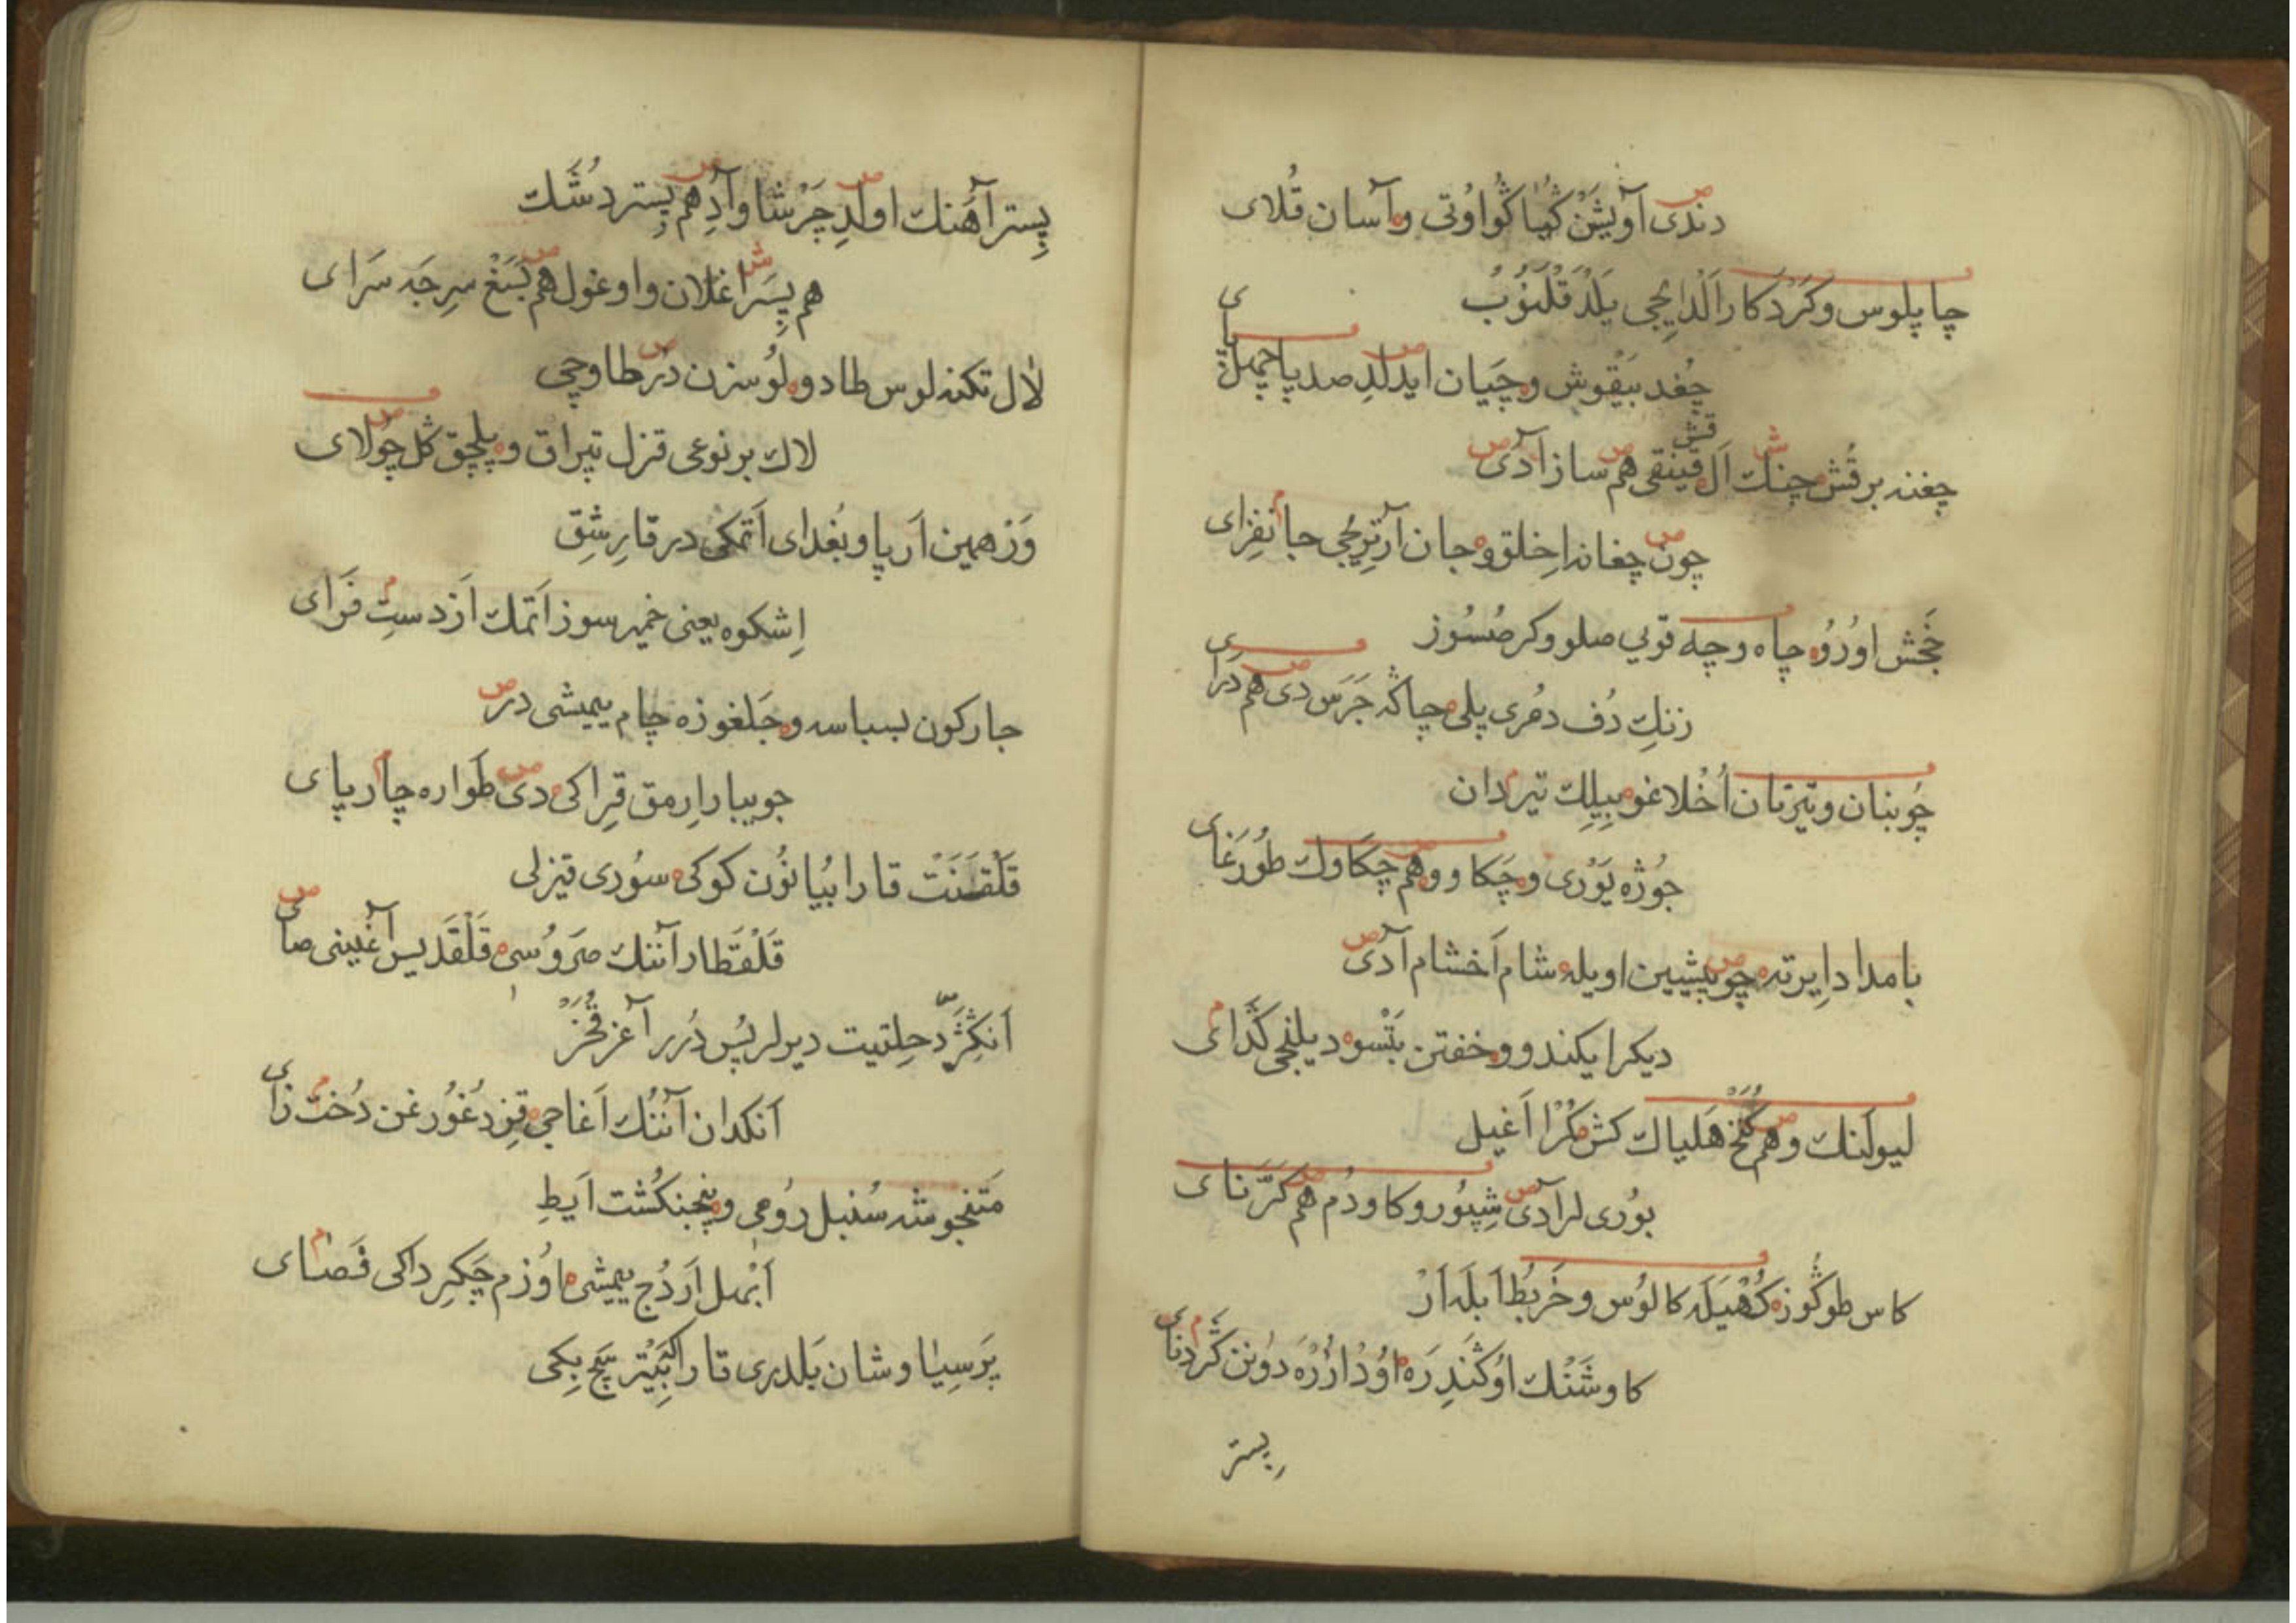 دندی آویشن کیا کواوتی و آسان قلای
چاپلوس و کردکار الدایجی یلدقلنوب
چغد بیقوش و چیان ایدلد صد پا چهل پای
چغنه برقش چنك ال قینقی هم ساز آدی
چون چغانه اخلق و جان آرتریجی جانفزای
خجش اورو چاه و چه قویی صلو وکر صسوز
زنك دف دمری پلی چاکه جرس دی هم درای
چوبنان و تیزنان اخلاغو بیلك تیردان
جوژه یوری و چکاو و هم چکاوك طورغای
بامداد ایرته چو پیشین اویله شام اخشام آدی
دیکر ایکندو و خفتن یتسو دیلنجی گدای
لیولنك و هم کخ هلیاك کش مکرا اغیل
بوری لر آدی شپور و کاودم هم کرنای
کاس طوکوز کهیله کالوس و خربط ابله ار
کاوشنك اوکندره اودارره دونن کردنای
پستر
پستر آهنك اولد چرشاو آدهم پستر دشك
هم پسر اغلان و اوغول هم بسغ سرجه سرای
لال تکنه لوس طادو و لوسزن در طاوجی
لاك بر نوعی قزل تپراق و پلچق گل چولای
وزهمین ارپا و بغدای اتمکی در قارشق
اشکوه یعنی خمیر سوز اتمك از دست فرای
جارکون بسباسه و جلغوزه چام یمیشی در
جویبار ارمق قراکی دی طواره چارپای
قلقنت قارا بیانون کوکی سوری قیزلی
قلقطار آننك صروسی قلقدیس آغینی صای
انکژد حلتیت دیرلر پس درر آغز قخز
انکدان آننك اغاجی قز دغورغن دخت زای
متنجوشه سنبل رومی و پنجنکشت ایط
ابهل اردج یمیشی اوزم چکرداکی فضای
پرسیاوشان بلدری قارا بیتر پچ بکی